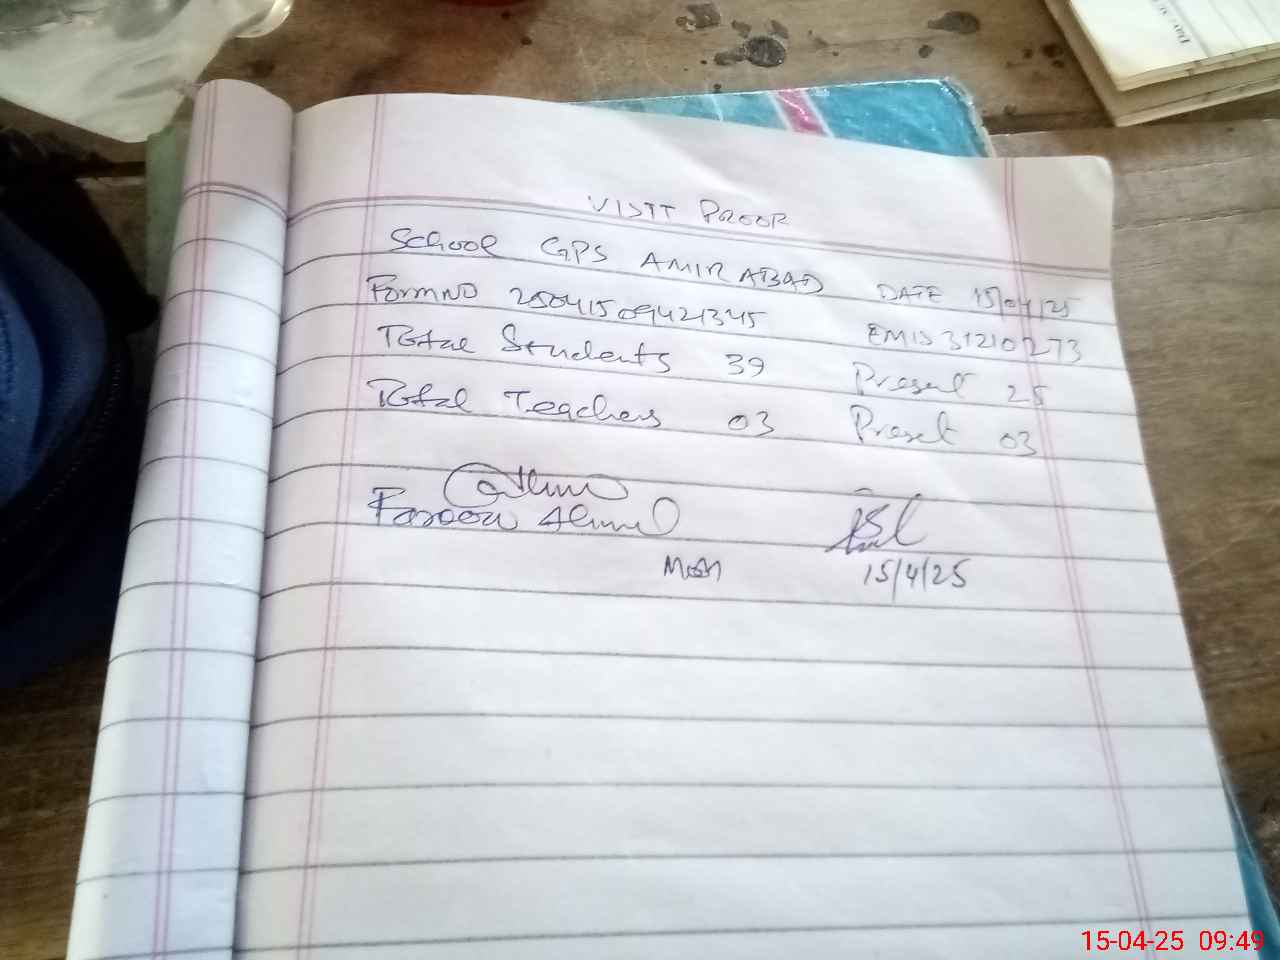 VISIT PROOF
School GPS AMIR ABAD DATE 15/04/25
Form NO 25041509421345 EMIS 31210273
Total Students 39 Present 25
Total Teachers 03 Preset 03
Farooq Ahmed
15/4/25
15-04-25 09:49